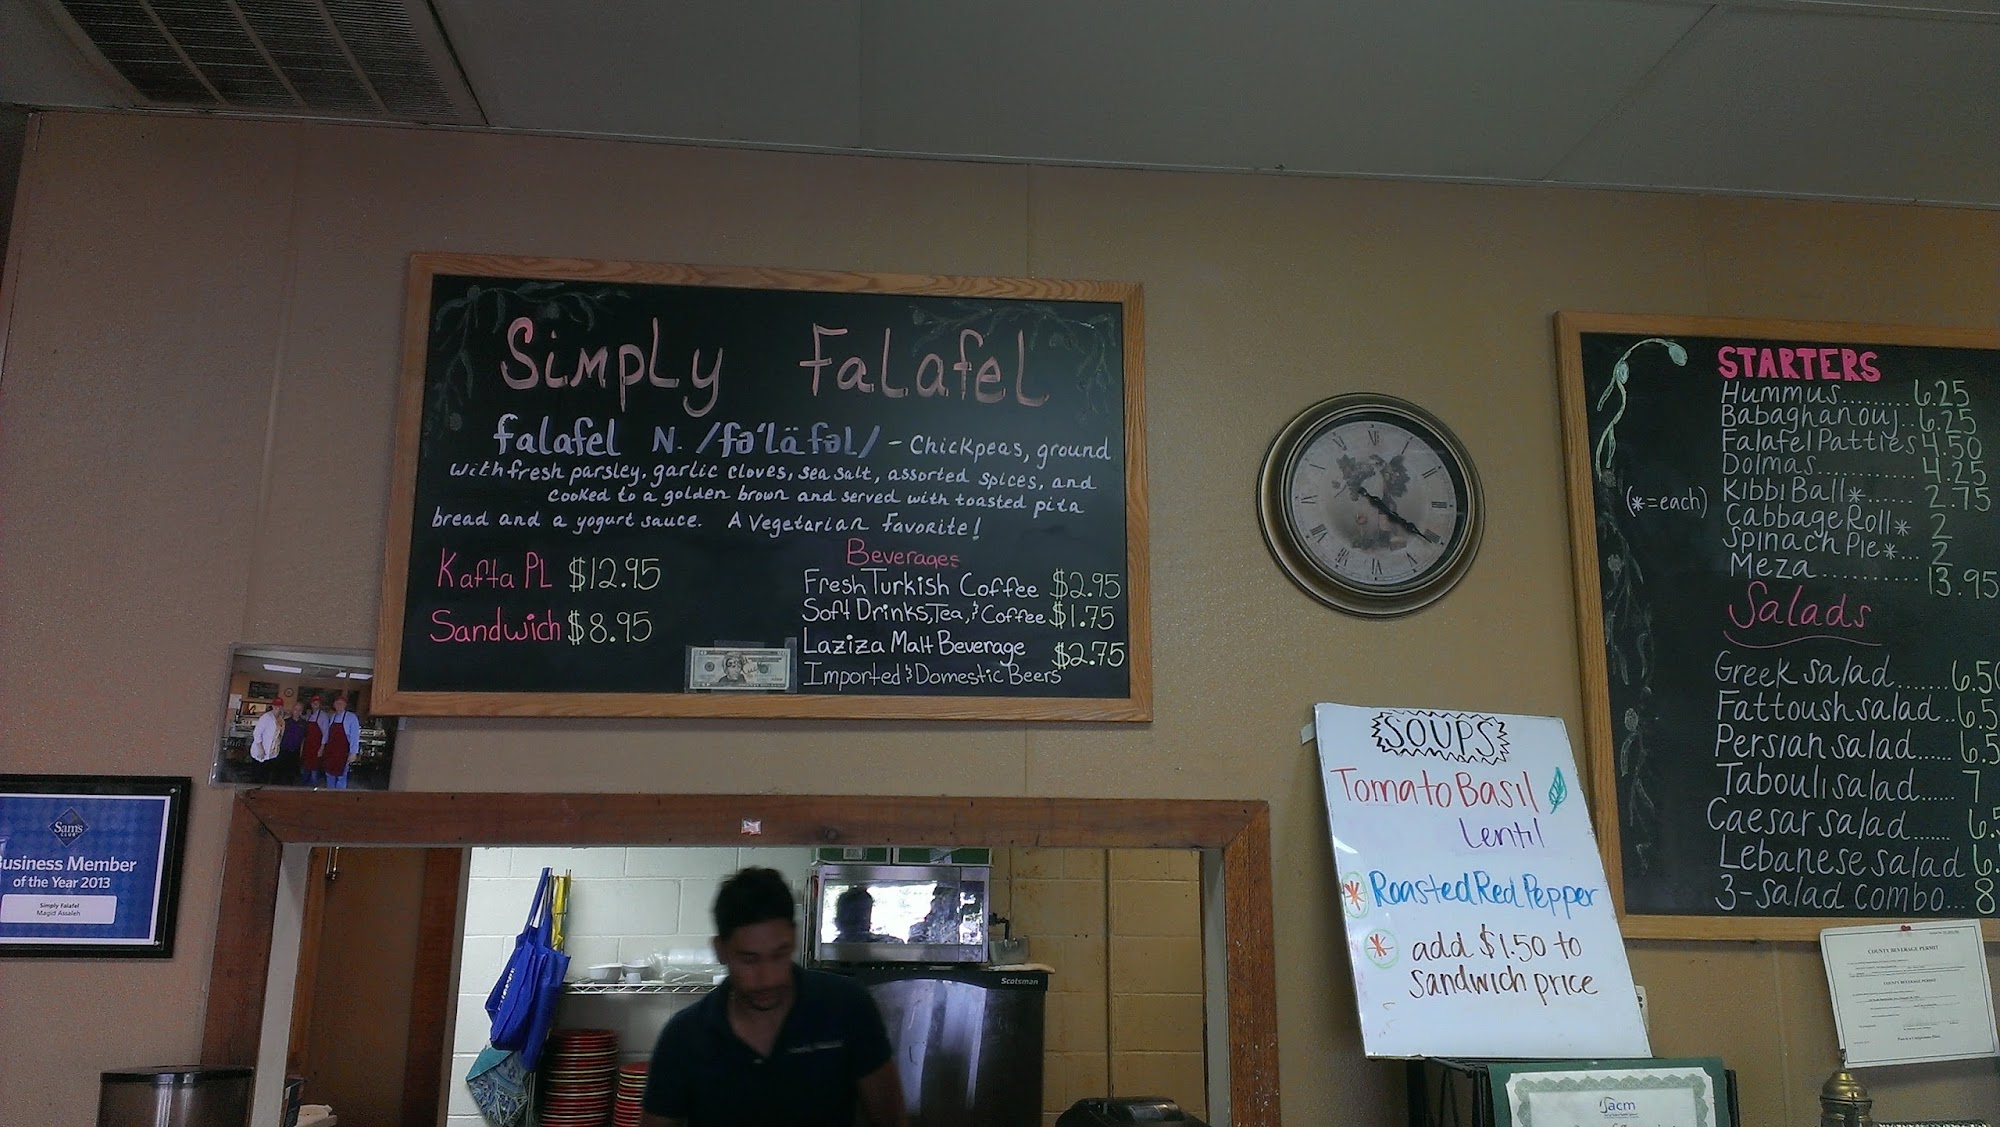 Simply Falafel
falafel N. /fə'läfəl/ - Chickpeas, ground
with fresh parsley, garlic cloves, sea salt, assorted spices, and
cooked to a golden brown and served with toasted pita
bread and a yogurt sauce. A Vegetarian Favorite!
Kafta PL $12.95
Sandwich $8.95
Beverages
Fresh Turkish Coffee $2.95
Soft Drinks, Tea, & Coffee $1.75
Laziza Malt Beverage $2.75
Imported & Domestic Beers
STARTERS
Hummus.........6.25
Babaghanouj..6.25
Falafel Patties 4.50
Dolmas..........4.25
(*=each)
Kibbi Ball*......2.75
Cabbage Roll* 2
Spinach Pie*... 2
Meza...........13.95
Salads
Greek salad.......6.50
Fattoush salad..6.5
Persian salad.....6.5
Tabouli salad...... 7
Caesar salad.......6.5
Lebanese salad 6.
3-salad combo... 8
SOUPS
Tomato Basil
Lentil
* Roasted Red Pepper
* add $1.50 to
sandwich price
Sam's
CLUB
Business Member
of the Year 2013
Simply Falafel
Magid Assaleh
Scotsman
COUNTY BEVERAGE PERMIT
COUNTY BEVERAGE PERMIT
acm